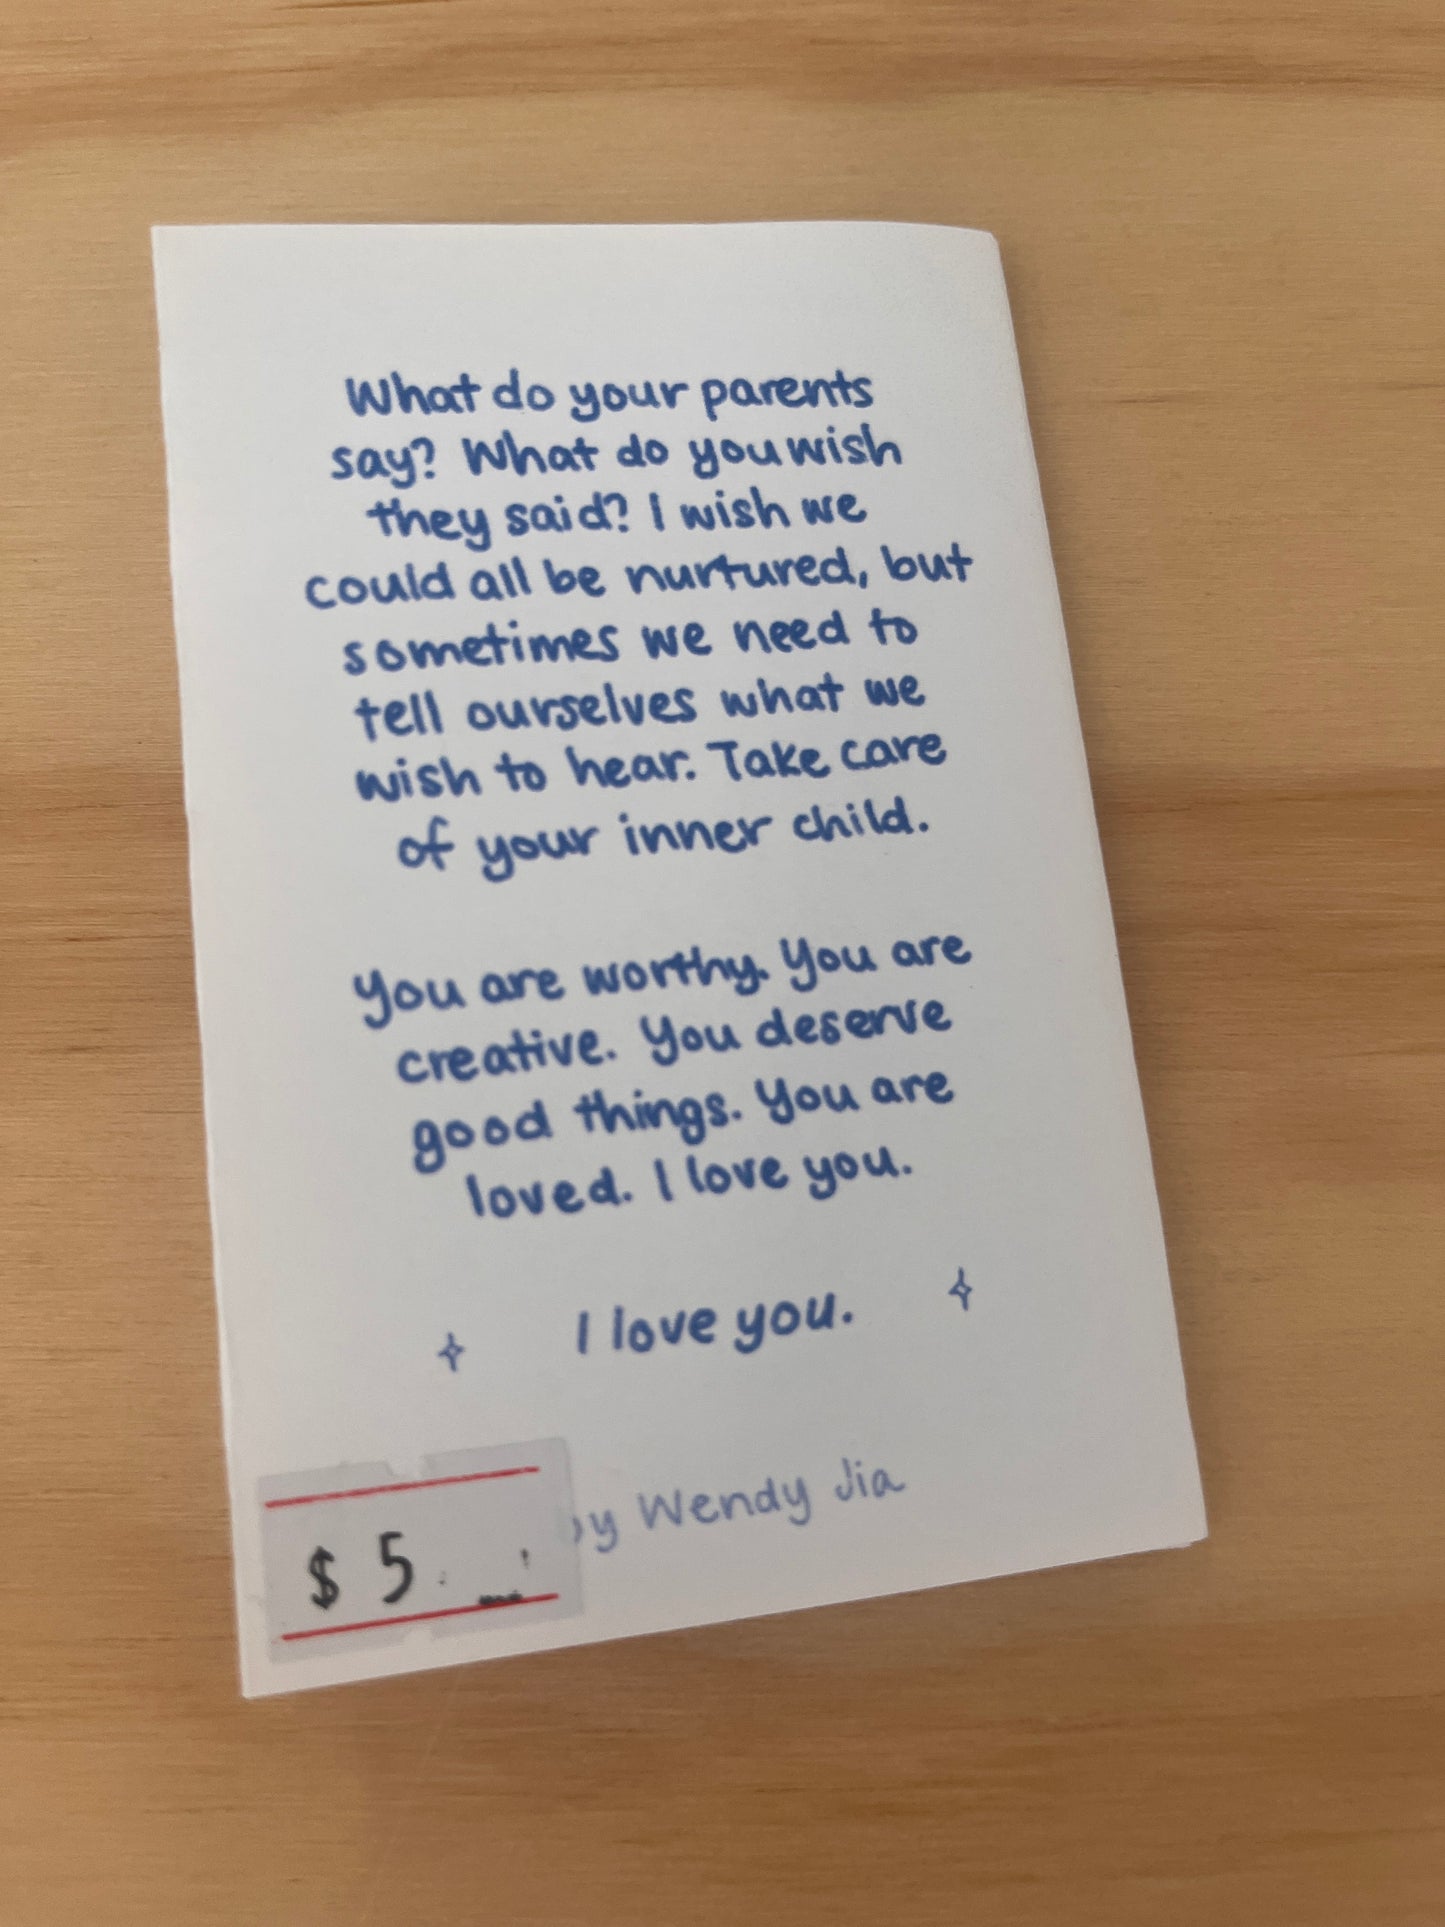 What do your parents
say? What do you wish
they said? I wish we
could all be nurtured, but
sometimes we need to
tell ourselves what we
wish to hear. Take care
of your inner child.
You are worthy. You are
creative. You deserve
good things. You are
loved. I love you.
I love you.
by Wendy Jia
$ 5.